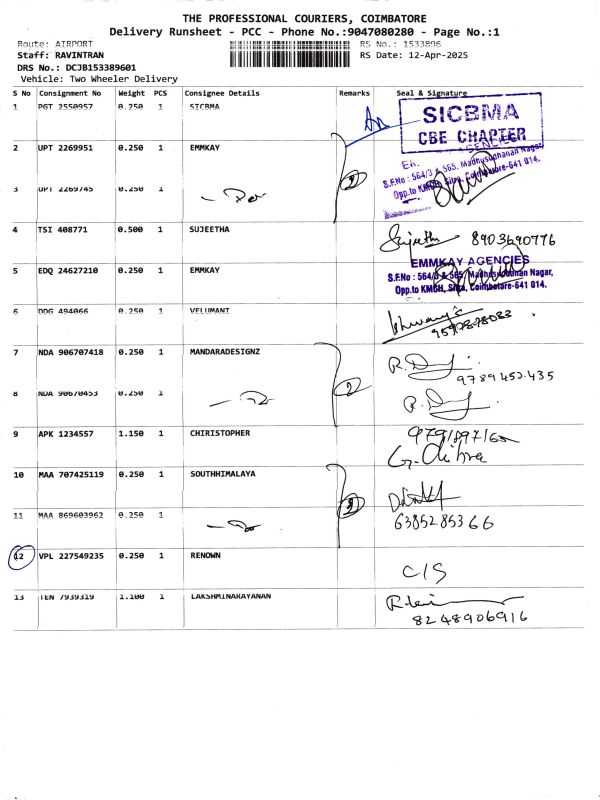 THE PROFESSIONAL COURIERS, COIMBATORE
Delivery Runsheet - PCC - Phone No.:9047080280 - Page No.:1
Route: AIRPORT RS No.: 1533896
Staff: RAVINTRAN RS Date: 12-Apr-2025
DRS No.: DCJB153389601
Vehicle: Two Wheeler Delivery
S No Consignment No Weight PCS Consignee Details Remarks Seal & Signature
1 PGT 2550957 0.250 1 SICBMA
SICBMA
CBE CHAPTER
2 UPT 2269951 0.250 1 EMMKAY
S.F.No : 564/3 & 565, Madhusudhanan Nagar,
Opp.to KMCH, Sitra, Coimbatore-641 014.
3 UPT 2269745 0.250 1
4 TSI 408771 0.500 1 SUJEETHA Sujeetha 8903690776
5 EDQ 24627210 0.250 1 EMMKAY
EMMKAY AGENCIES
S.F.No : 564/3 & 565, Madhusudhanan Nagar,
Opp.to KMCH, Sitra, Coimbatore-641 014.
6 DDG 494066 0.250 1 VELUMANI
7 NDA 906707418 0.250 1 MANDARADESIGNZ
9789452435
8 NDA 90670453 0.250 1 2
9 APK 1234557 1.150 1 CHIRISTOPHER
10 MAA 707425119 0.250 1 SOUTHHIMALAYA
11 MAA 869603962 0.250 1
6385285366
12 VPL 227549235 0.250 1 RENOWN
C/S
13 TEN 7939319 1.100 1 LAKSHMINARAYANAN
8248906916